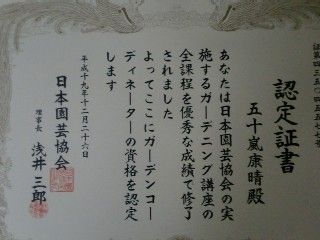 認定証書
五十嵐康晴殿
あなたは日本園芸協会の実
施するガーデニング講座の
全課程を優秀な成績で修了
されました
よってここにガーデンコー
ディネーターの資格を認定
します
平成十九年十二月二十六日
日本園芸協会
理事長 浅井三郎